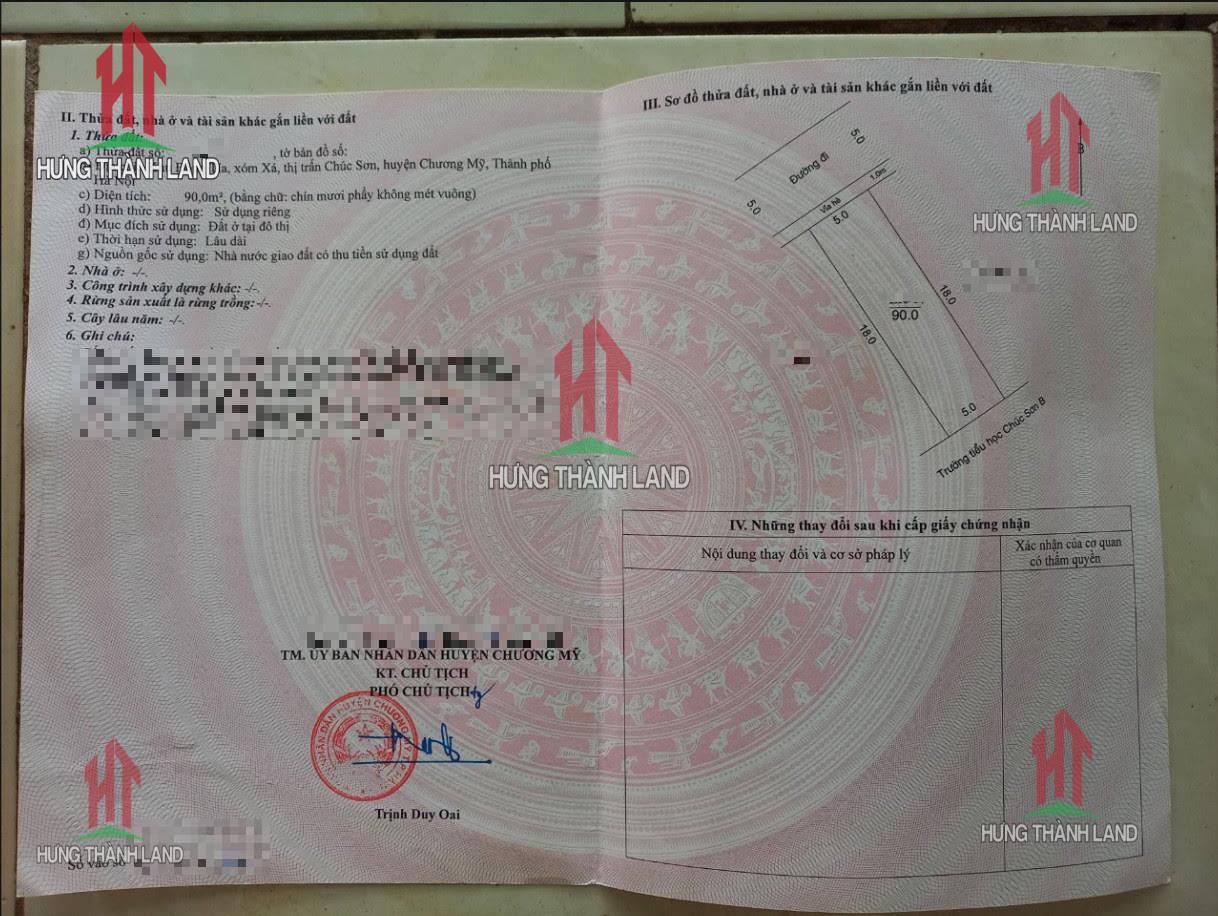 II. Thửa đất, nhà ở và tài sản khác gắn liền với đất
1. Thửa đất:
a) Thửa đất số: , tờ bản đồ số:
xóm Xá, thị trấn Chúc Sơn, huyện Chương Mỹ, Thành phố
Hà Nội
c) Diện tích: 90,0m², (bằng chữ: chín mươi phẩy không mét vuông)
d) Hình thức sử dụng: Sử dụng riêng
đ) Mục đích sử dụng: Đất ở tại đô thị
e) Thời hạn sử dụng: Lâu dài
g) Nguồn gốc sử dụng: Nhà nước giao đất có thu tiền sử dụng đất
2. Nhà ở: -/-.
3. Công trình xây dựng khác: -/-.
4. Rừng sản xuất là rừng trồng:-/-.
5. Cây lâu năm: -/-.
6. Ghi chú:
TM. ỦY BAN NHÂN DÂN HUYỆN CHƯƠNG MỸ
KT. CHỦ TỊCH
PHÓ CHỦ TỊCH
Trịnh Duy Oai
Số vào sổ
III. Sơ đồ thửa đất, nhà ở và tài sản khác gắn liền với đất
B
5.0
Đường đi
1.0m
5.0
Vỉa hè
5.0
18.0
90.0
18.0
5.0
Trường tiểu học Chúc Sơn B
IV. Những thay đổi sau khi cấp giấy chứng nhận
Nội dung thay đổi và cơ sở pháp lý
Xác nhận của cơ quan
có thẩm quyền
HƯNG THÀNH LAND
HƯNG THÀNH LAND
HƯNG THÀNH LAND
HƯNG THÀNH LAND
HƯNG THÀNH LAND